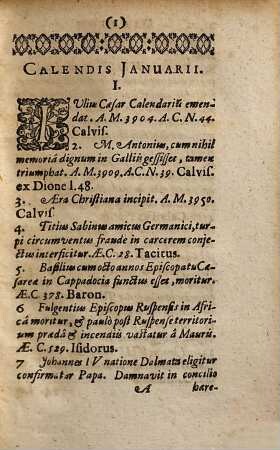 (1)
CALENDIS JANUARII.
I.
IUliu Cæsar Calendariũ emen-
dat. A. M. 3904. A. C. N. 44.
Calvis.
2. M. Antonius, cum nihil
memoriâ dignum in Galliis gessisset, tamen
triumphat. A. M. 3909. A.C.N. 39. Calvis.
ex Dione l. 48.
3. Æra Christiana incipit. A. M. 3950.
Calvis.
4. Titius Sabinus amicus Germanici, tur-
pi circumventus fraude in carcerem conje-
ctus interficitur. Æ.C. 28. Tacitus.
5. Basilius cum octo annos Episcopatu Cæ-
sareæ in Cappadocia functus esset, moritur.
Æ.C 378. Baron.
6 Fulgentius Episcopus Ruspensis in Afri-
cà moritur, & paulò post Ruspense territori-
um prædâ & incendiis vastatur à Mauris.
Æ. C. 529. Isidorus.
7 Johannes IV natione Dalmata eligitur
confirmatur Papa. Damnavit in concilio
A hære-